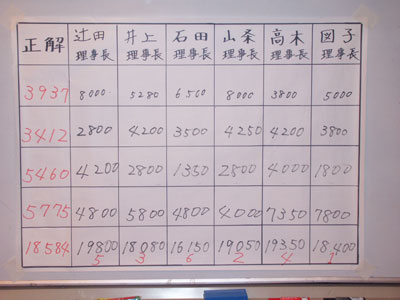 正解 辻田理事長 井上理事長 石田理事長 山条理事長 高木理事長 図子理事長
3937 8000 5280 6500 8000 3800 5000
3412 2800 4200 3500 4250 4200 3800
5460 4200 2800 1350 2800 4000 1800
5775 4800 5800 4800 4000 7350 7800
18584 19800 18080 16150 19050 19350 18400
5 3 6 2 4 1